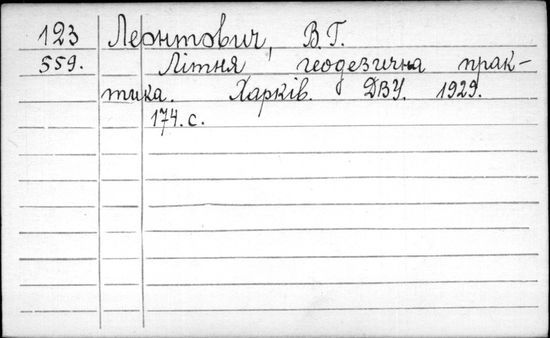 123 Леонтович, В.Г.
559. Літня геодезична прак-
тика. Харків. ДВУ. 1929.
174.с.